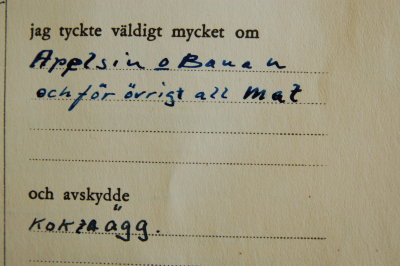 jag tyckte väldigt mycket om
Apelsin o Banan
och för övrigt all mat
och avskydde
KOKTA ägg.